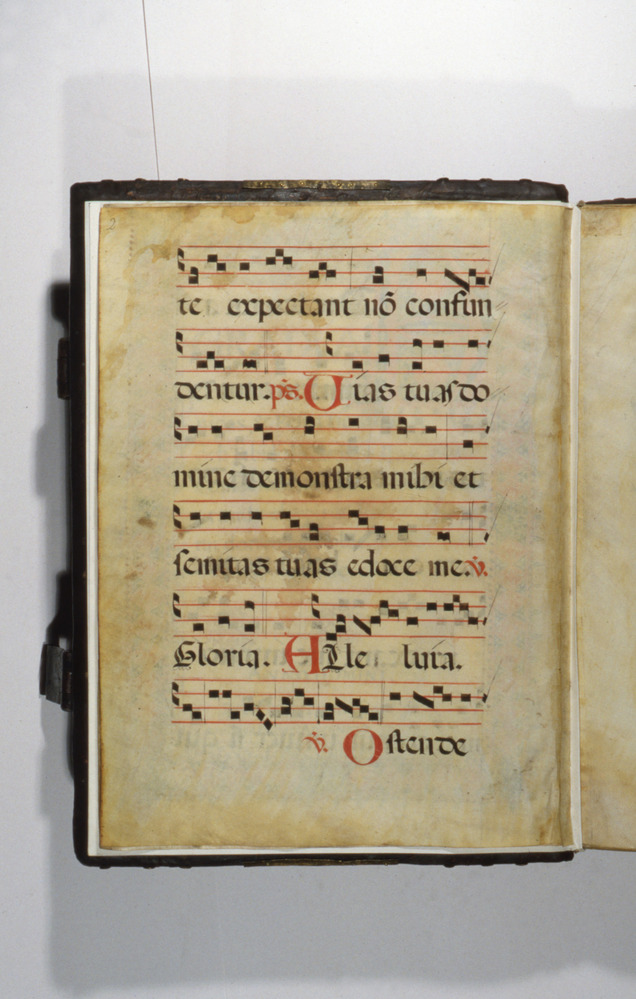 2
te expectant nō confun
dentur. ps. Uias tuas do
mine demonstra mihi et
semitas tuas edoce me. v.
Gloria. Alle luia.
v. Ostende